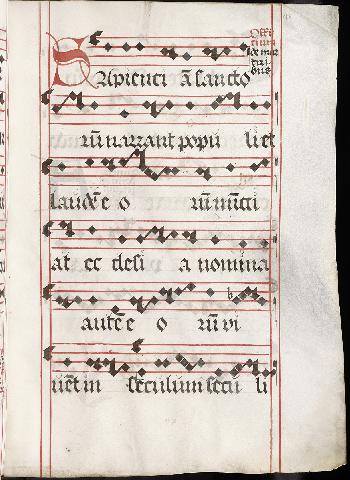 Offi
cium
de mar
tiri
bus
Sapienci ā sancto
rū narrant popu li et
laudē e o rū nūcti
at ec clesi a nomina
autē e o rū vi
vēt in seculum secu li